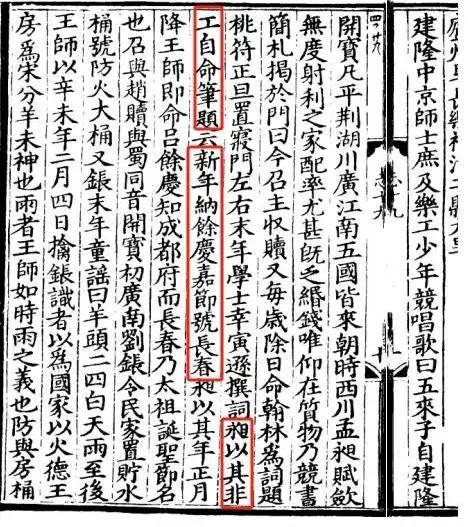 建隆中京師士庶及樂工少年競唱歌曰五來子自建隆
開寶凡平荊湖川廣江南五國皆來朝時西川孟昶賦斂
無度射利之家配率尤甚旣乏緡錢唯仰在質物乃競書
簡札揭於門曰今召主收贖又每歲除日命翰林爲詞題
桃符正旦置寢門左右末年學士幸寅遜撰詞昶以其非
工自命筆題云新年納餘慶嘉節號長春昶以其年正月
降王師即命呂餘慶知成都府而長春乃太祖誕聖節名
也召與趙贖與蜀同音開寶初廣南劉鋹令民家置貯水
桶號防火大桶又鋹末年童謠曰羊頭二四白天雨至後
王師以辛未年二月四日擒鋹識者以爲國家以火德王
房爲宋分羊未神也雨者王師如時雨之義也防與房桶